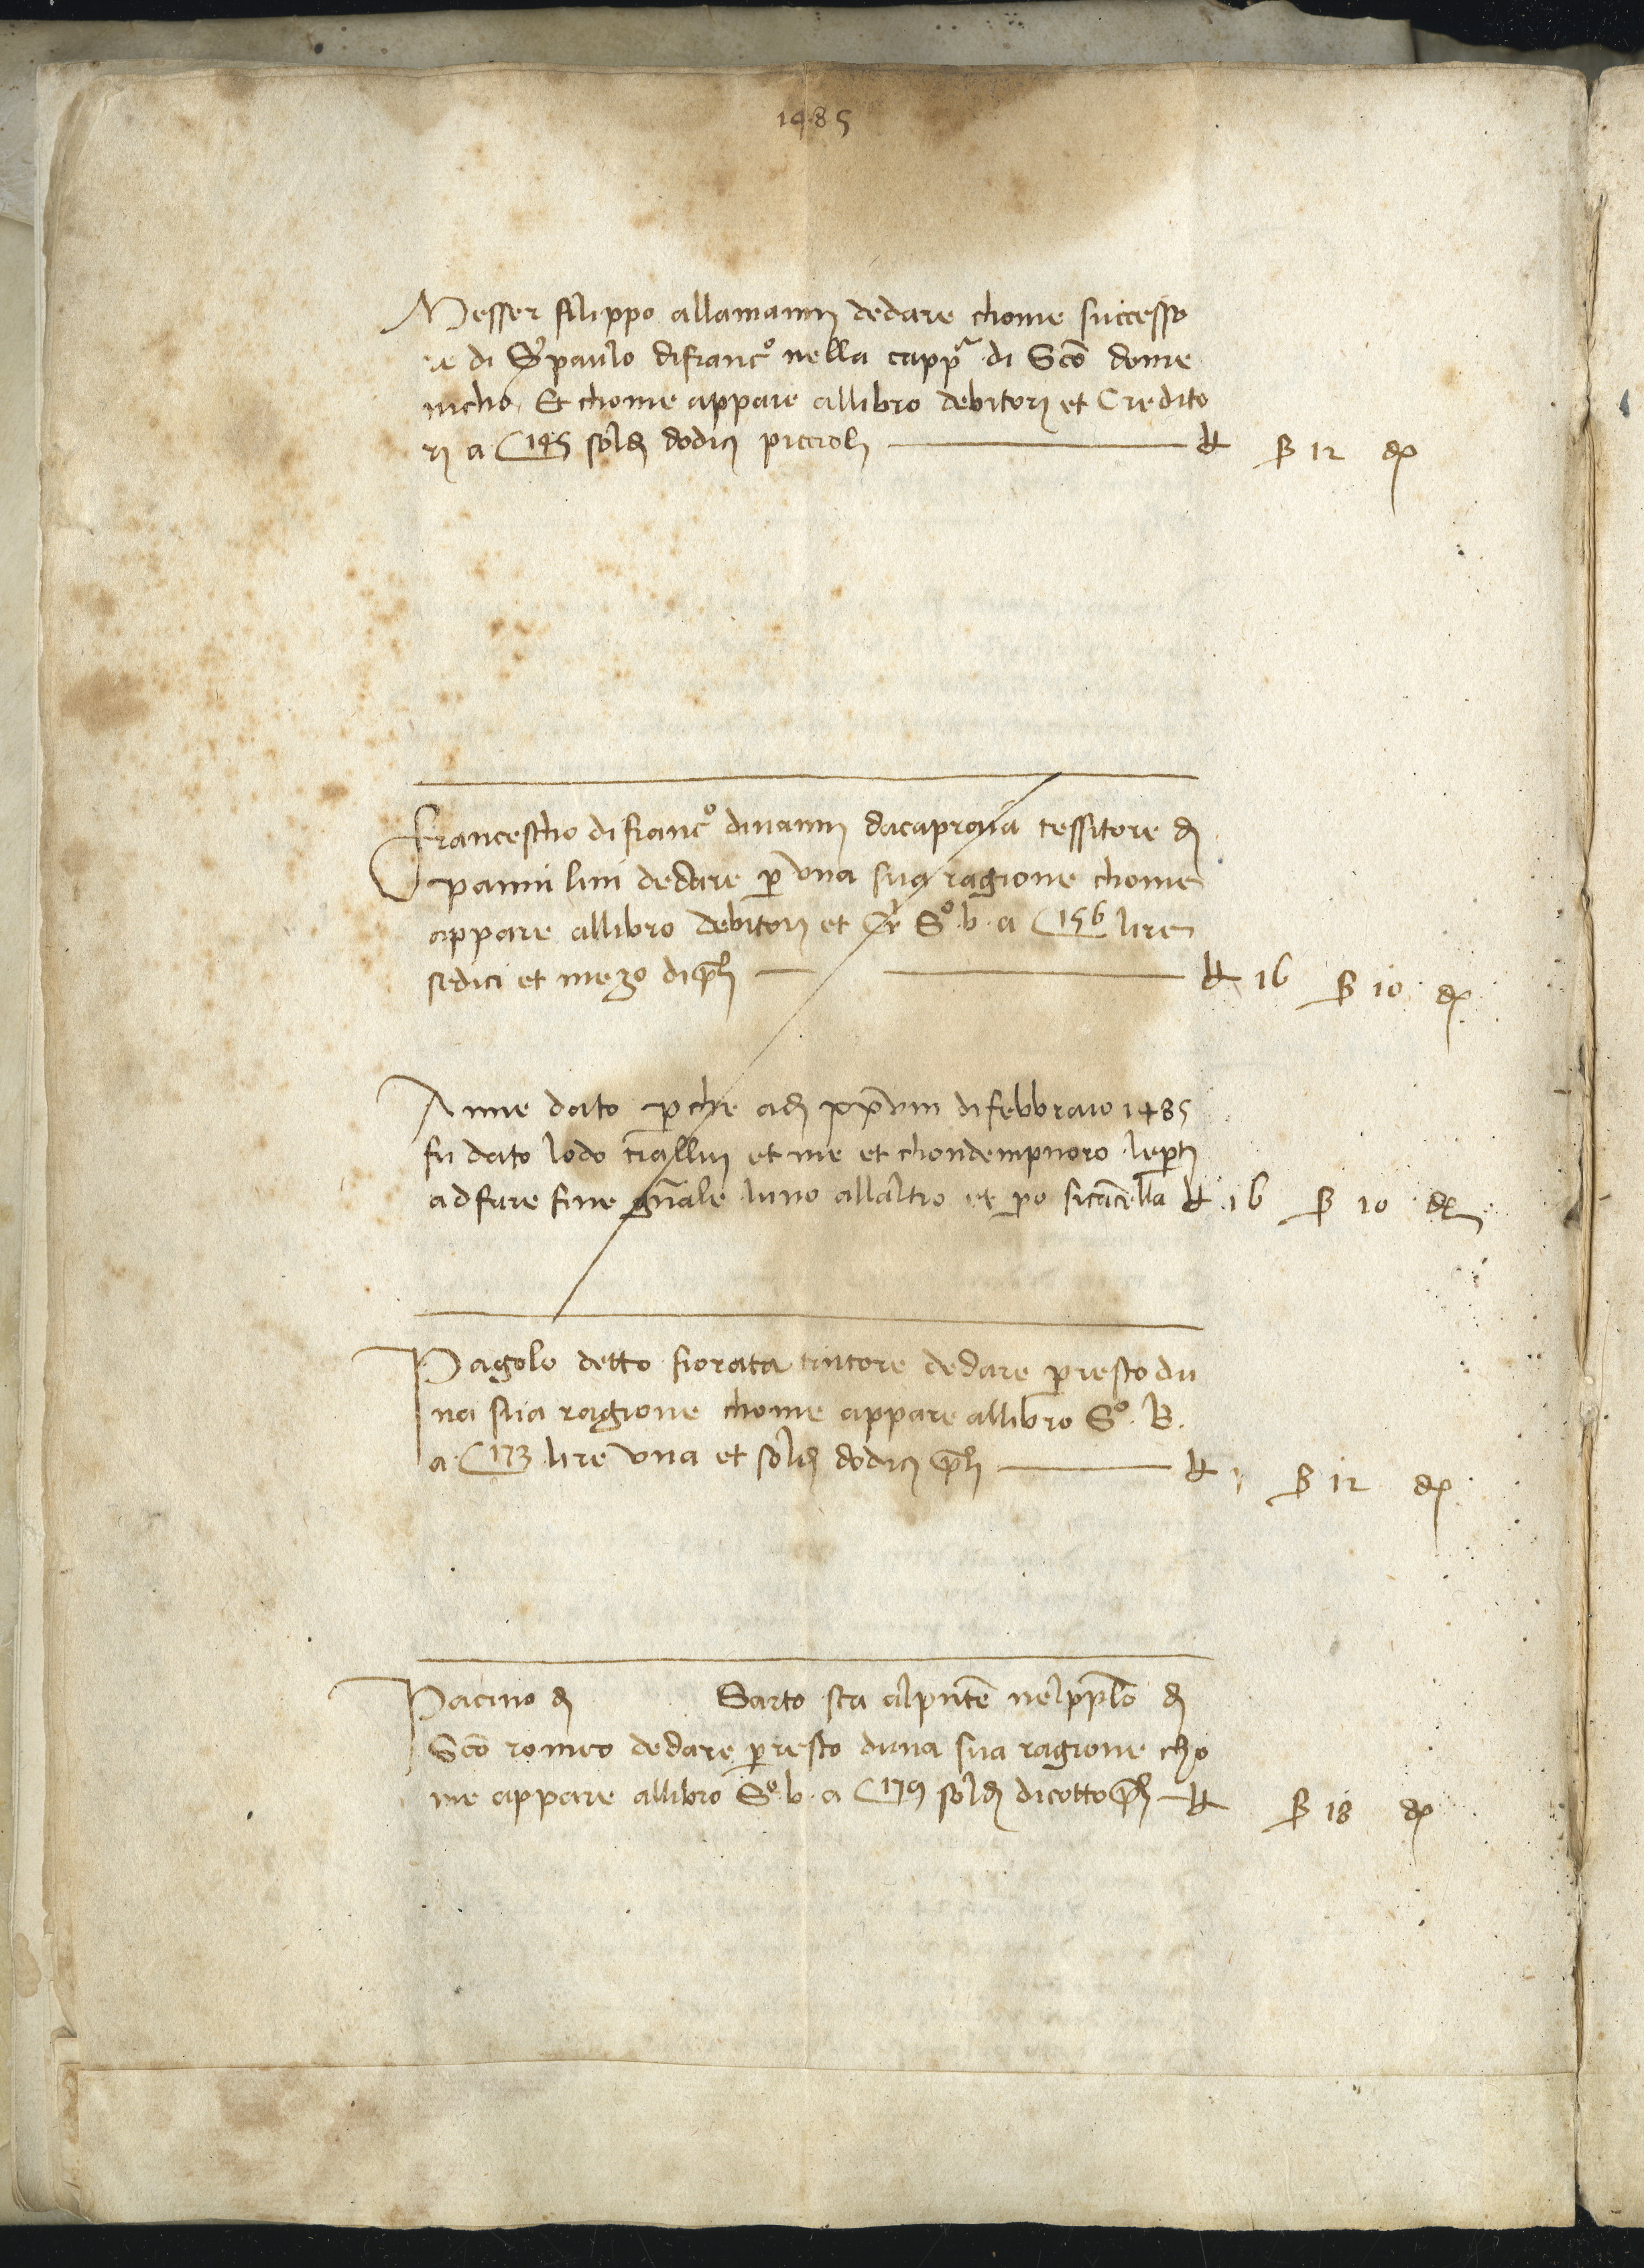 1485
Messer filippo allamanni dedare chome successo
re di Sr paulo di francº nella cappª di Sco dome
nicho Et chome appare allibro debitori et Credito
ri a C 145 soldi dodici piccioli — £ ß 12 dp
Francescho di francº divanni dacapraia tessitore di
panni lini dedare p una sua ragione chome
appare allibro debitori et Cr Sº b a C 156 lire
sedici et mezo di pli — £ 16 ß 10 dp
Anne dato p che adi xxviii di febbraio 1485
fu dato lodo tra llui et me et chondempnoro le pti
ad fare fine gnale luno allaltro et po si cancella £ 16 ß 10 d
Pagolo detto fiorata tintore dedare p resto du
na sua ragione chome appare allibro Sº B
a C 173 lire una et soldi dodici pli — £ 1 ß 12 dp
Pacino di Sarto sta al pnte nel pplo di
Sco romeo dedare p resto duna sua ragione cho
me appare allibro Sº b a C 179 soldi diciotto pli — £ ß 18 dp